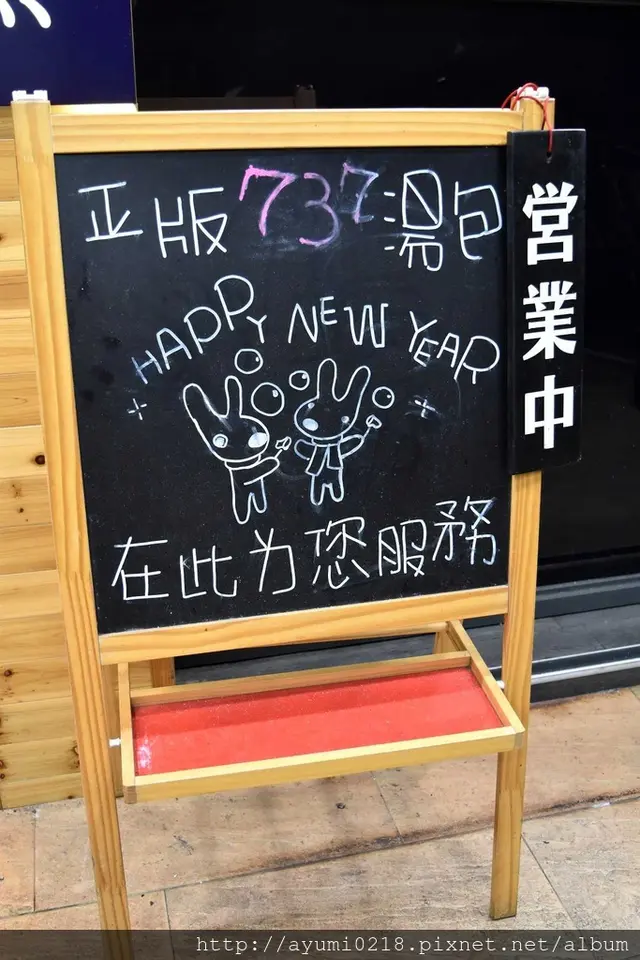 正版737湯包
HAPPY NEW YEAR
在此为您服務
営業中
http://ayumi0218.pixnet.net/album